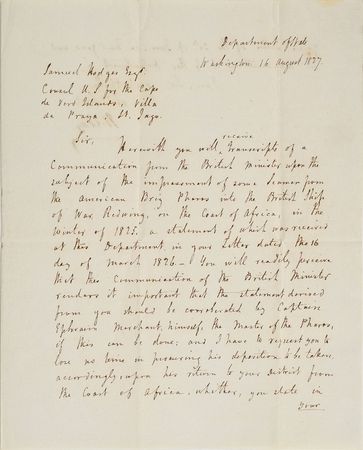 Department of State
Washington 16 August 1827.
Samuel Hodges Esqr.
Consul U.S for the Cape
de Verd Islands, Villa
de Praya, St. Iago.
Sir,
receive
Herewith you will, Transcripts of a
Communication from the British Minister upon the
subject of the impressment of some Seamen from
the american Brig Pharos into the British Ship
of War Redwing, on the Coast of Africa, in the
Winter of 1825. a statement of which was received
at this Department, in your Letter dated, the 16
day of march 1826 – You will readily perceive
that this Communication of the British Minister
renders it important that the statement derived
from you should be corroborated by Captain
Ephraim Merchant, himself, the Master of the Pharos,
if this can be done; and I have to request you to
lose no time in procuring his deposition to be taken,
accordingly, upon his return to your District from
the Coast of Africa, whither, you state in
your